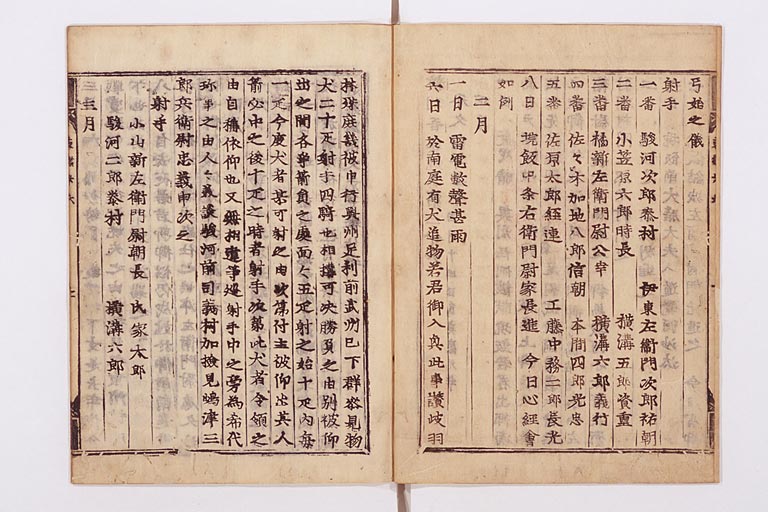 弓始之儀
射手
一番 駿河次郎泰村 伊東左衛門次郎祐朝
二番 小笠原六郎時長 横溝五郎資重
三番 橘新左衛門尉公幸 横溝六郎義行
四番 佐々木加地八郎信朝 本間四郎光忠
五番 佐原太郎経連 工藤中務二郎長光
八日 垸飯中条右衛門尉家長進上 今日心経會
如例
二月
一日 雷電數聲甚雨
六日 於南庭有犬追物若君御入興此事讃岐羽
林殊庭議被申行奥州足利前武州已下群参見物
犬二十疋射手四騎也相搆可決勝負之由別被仰
出之間各争箭員之處面々五疋射之始十疋内棄
一疋今度犬者某可射之由次第付主被仰出其人
箭必中之後十疋之時者射手次第此犬者令領之
由自稱依仰也又無相違等逕射手中之勞為希代
珎事之由人々美談駿河前司義村加撿見嶋津三
郎兵衛尉忠義申次之
射手
小山新左衛門尉朝長 氏家太郎
駿河二郎泰村 横溝六郎
三月